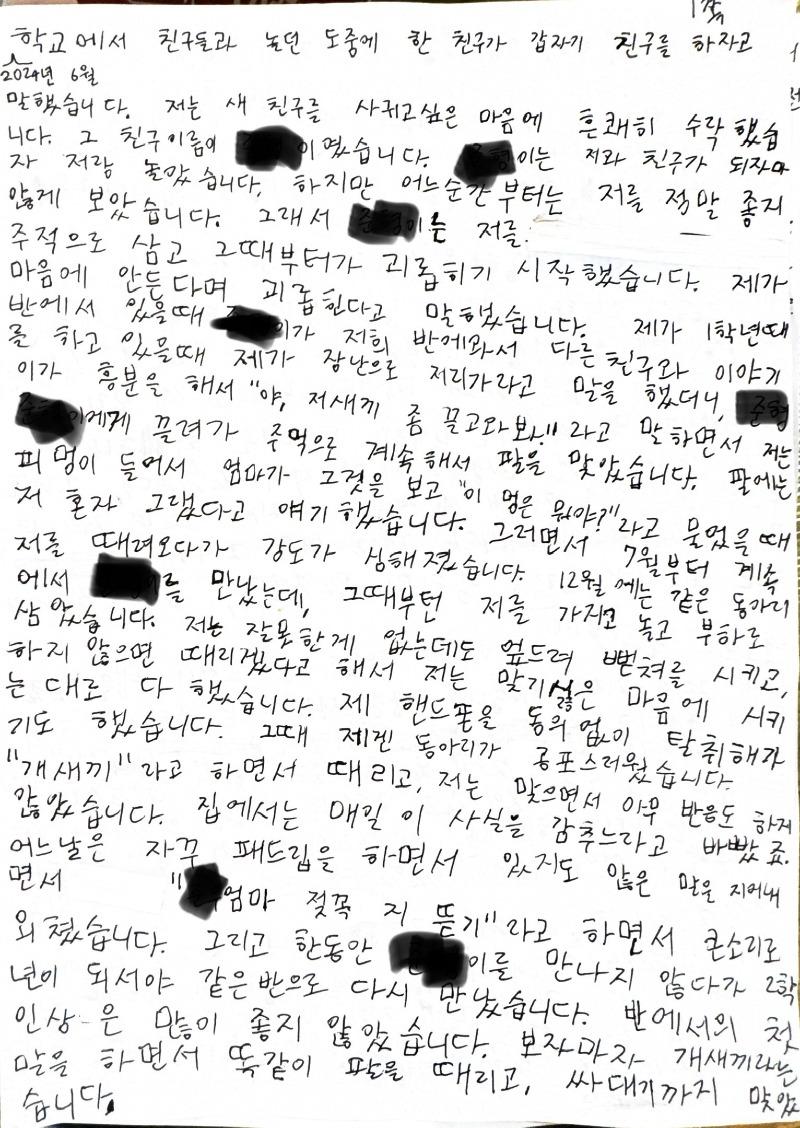 1쪽
학교에서 친구들과 놀던 도중에 한 친구가 갑자기 친구를 하자고
2024년 6월
말했습니다. 저는 새 친구를 사귀고싶은 마음에 흔쾌히 수락했습
니다. 그 친구이름이 이였습니다. 형이는 저와 친구가 되자마
자 저랑 놀았습니다. 하지만 어느순간부터는 저를 정말 좋지
않게 보았습니다. 그래서 이는 저를
주적으로 삼고 그때부터가 괴롭히기 시작했습니다. 제가
마음에 안든다며 괴롭힌다고 말했습니다. 제가 1학년때
반에서 있을때 이가 저희 반에와서 다른친구와 이야기
를 하고 있을때 제가 장난으로 저리가라고 말을 했더니, 준형
이가 흥분을 해서 "야, 저새끼 좀 끌고와봐!"라고 말하면서 저는
이에게 끌려가 주먹으로 계속해서 팔을 맞았습니다. 팔에는
피멍이 들어서 엄마가 그것을 보고 "이 멍은 뭐야?"라고 물었을때
저 혼자 그랬다고 얘기했습니다. 그러면서 7월부터 계속
저를 때려오다가 강도가 심해졌습니다. 12월에는 같은 동아리
에서 를 만났는데, 그때부턴 저를 가지고 놀고 부하로
삼았습니다. 저는 잘못한게 없는데도 엎드려 뻗쳐를 시키고,
하지 않으면 때리겠다고 해서 저는 맞기싫은 마음에 시키
는대로 다 했습니다. 제 핸드폰을 동의없이 탈취해가
기도 했습니다. 그때 제겐 동아리가 공포스러웠습니다.
"개새끼"라고 하면서 때리고, 저는 맞으면서 아무 반응도 하지
않았습니다. 집에서는 매일 이 사실을 감추느라고 바빴죠.
어느날은 자꾸 패드립을 하면서 있지도 않은 말을 지어내
면서 "엄마 젖꼭지 뜯기"라고 하면서 큰소리로
외쳤습니다. 그리고 한동안 이를 만나지 않다가 2학
년이 되서야 같은반으로 다시 만났습니다. 반에서의 첫
인상은 많이 좋지 않았습니다. 보자마자 개새끼라는
말을 하면서 똑같이 팔을 때리고, 싸대기까지 맞았
습니다.